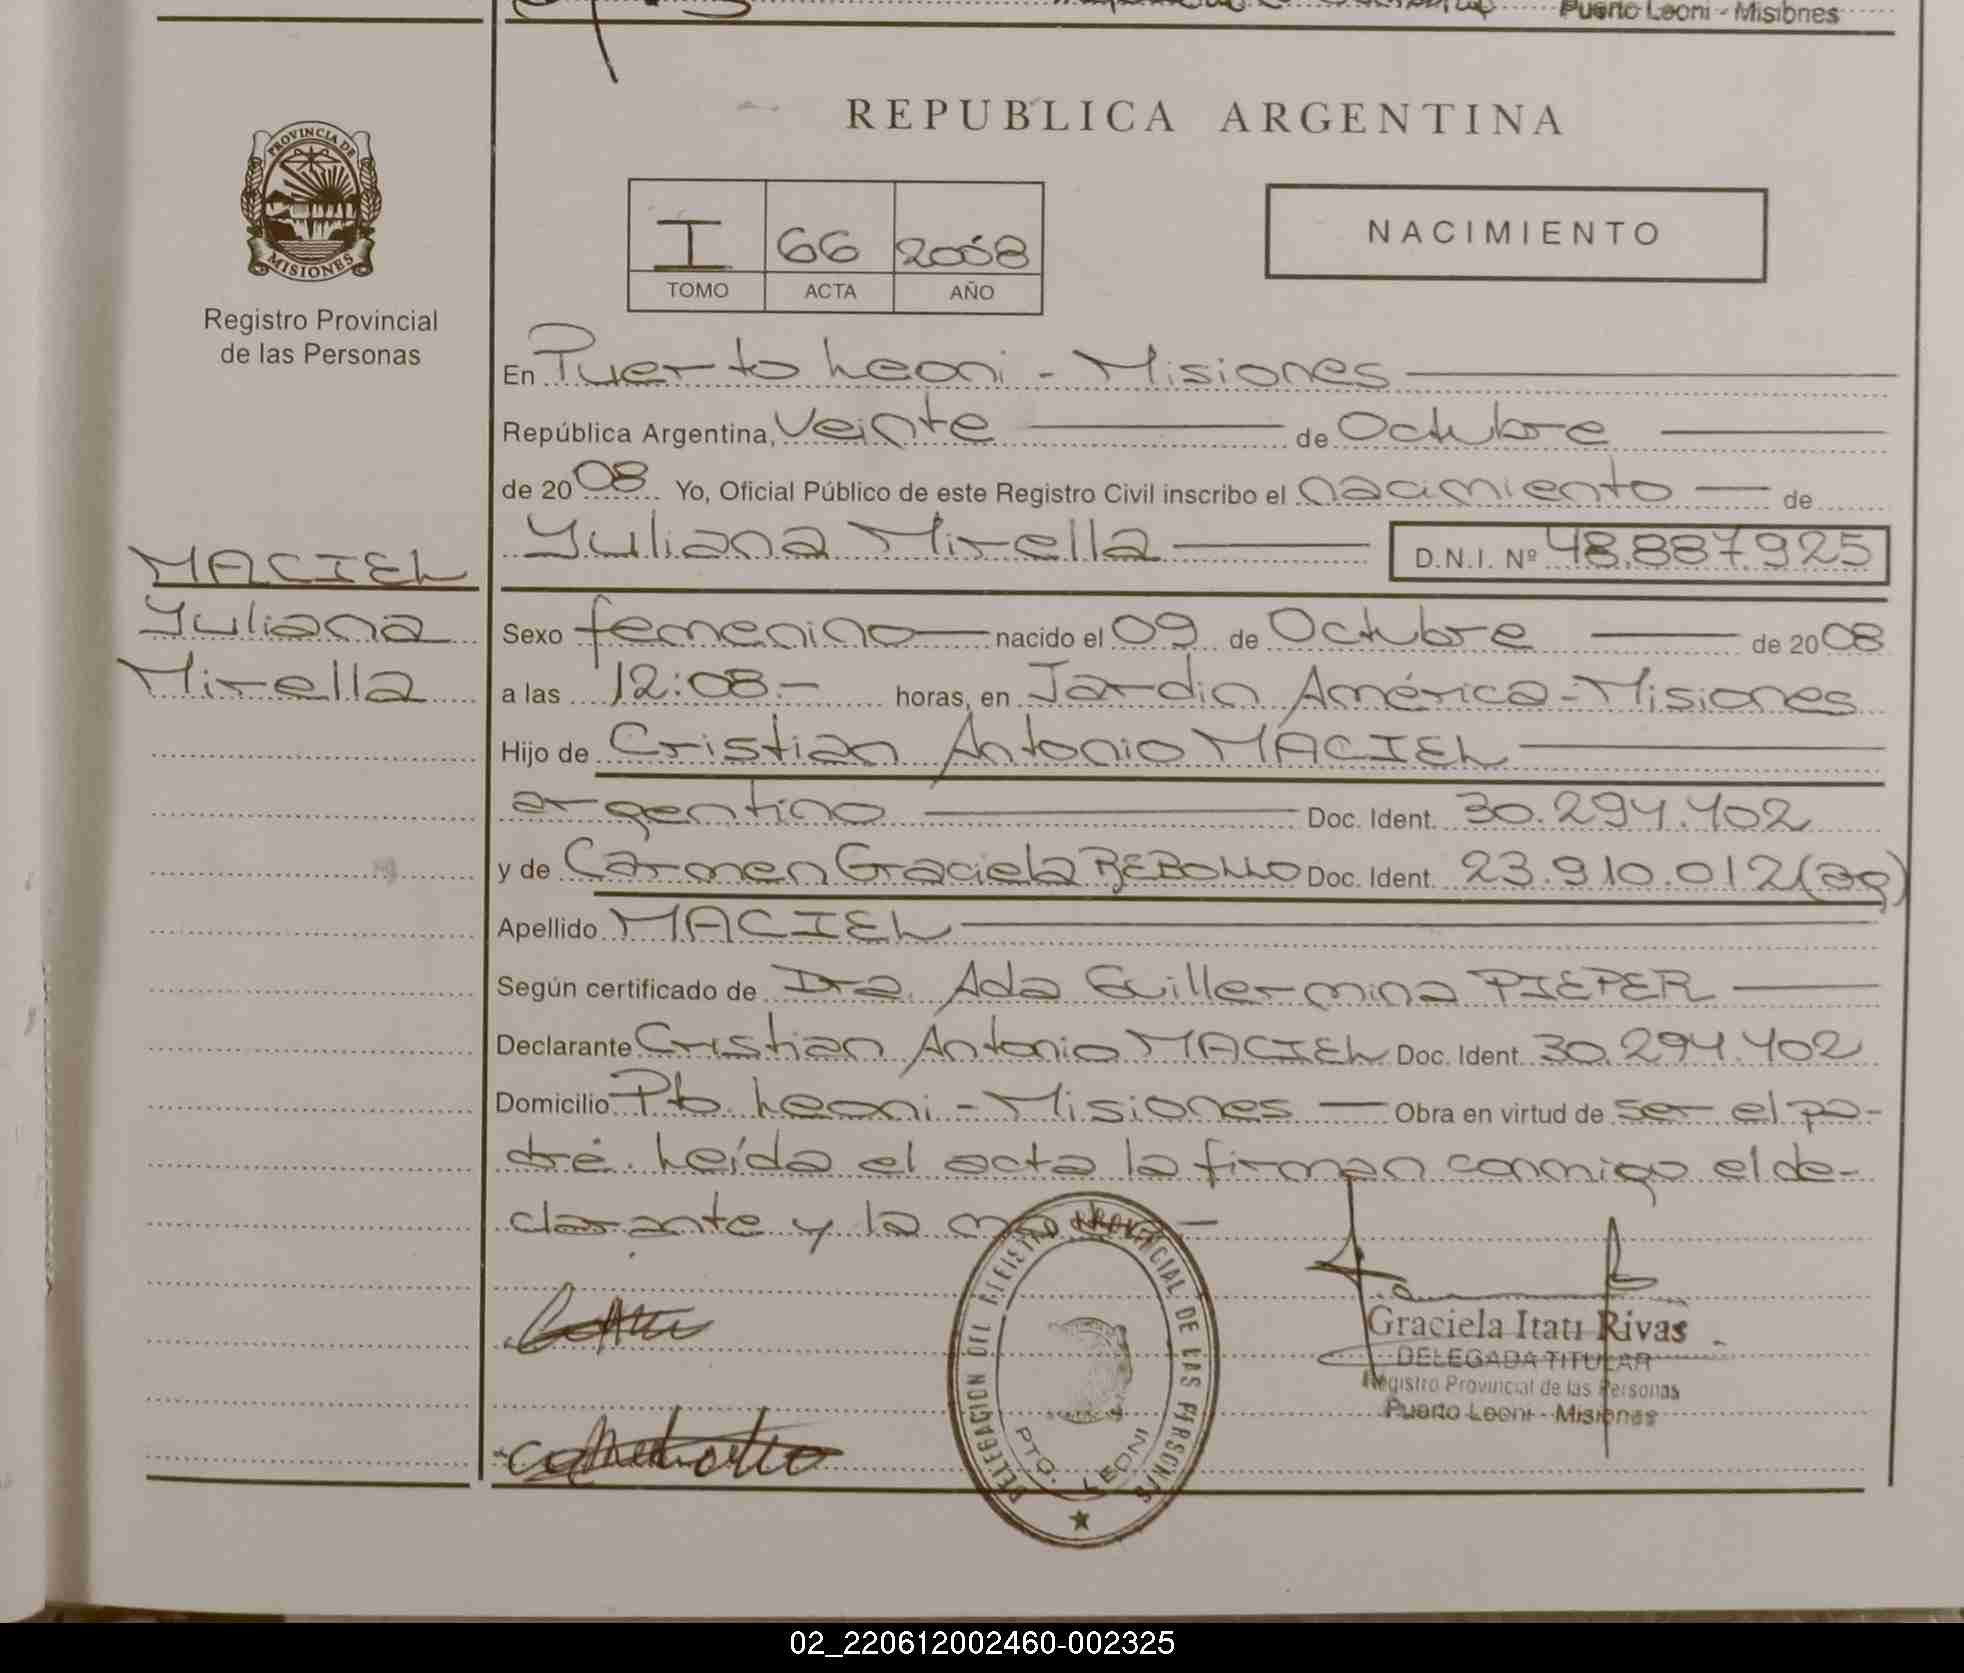 Puerto Leoni - Misiones
REPUBLICA ARGENTINA
PROVINCIA DE
MISIONES
Registro Provincial
de las Personas
I 66 2008
TOMO ACTA AÑO
NACIMIENTO
En Puerto Leoni - Misiones
República Argentina, Veinte de Octubre
de 2008 Yo, Oficial Público de este Registro Civil inscribo el nacimiento de
Yuliana Mirella D.N.I. Nº 48.887.925
MACIEL
Yuliana
Mirella
Sexo femenino nacido el 09 de Octubre de 2008
a las 12:08.- horas, en Jardin América - Misiones
Hijo de Cristian Antonio MACIEL
argentino Doc. Ident. 30.294.402
y de Carmen Graciela REBOLLO Doc. Ident. 23.910.012 (ag)
Apellido MACIEL
Según certificado de Dra. Ada Guillermina PIEPER
Declarante Cristian Antonio MACIEL Doc. Ident. 30.294.402
Domicilio Pto. Leoni - Misiones Obra en virtud de ser el pa-
dre. Leída el acta la firman conmigo el de-
clarante y la
DELEGACION DEL REGISTRO PROVINCIAL DE LAS PERSONAS
PTO. LEONI
Graciela Itatí Rivas
DELEGADA TITULAR
Registro Provincial de las Personas
Puerto Leoni - Misiones
02_220612002460-002325